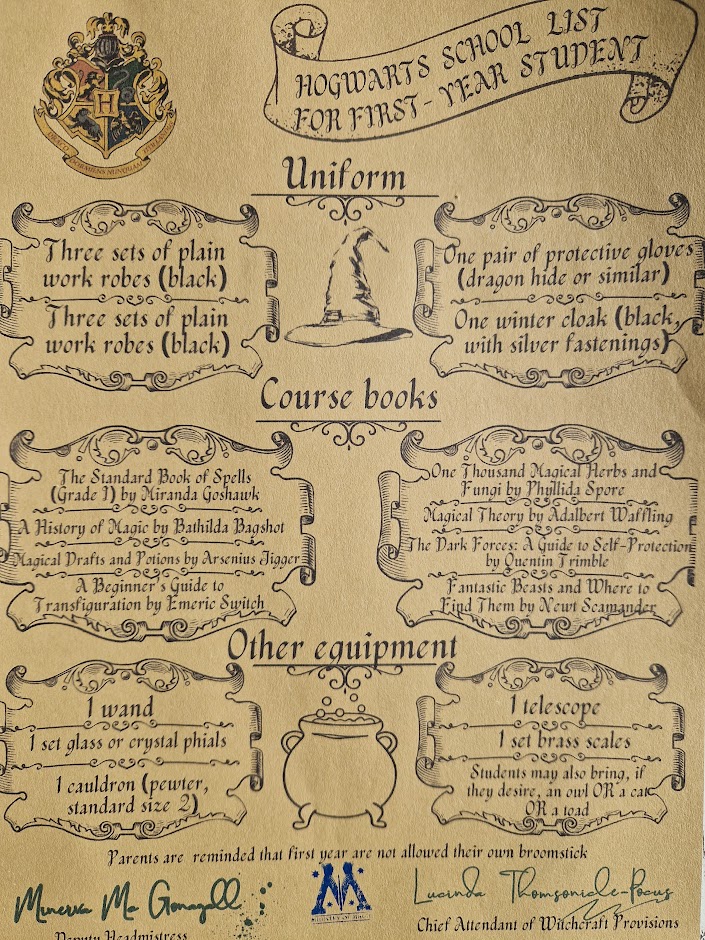 HOGWARTS SCHOOL LIST
FOR FIRST-YEAR STUDENT
H
Uniform
Three sets of plain
work robes (black)
Three sets of plain
work robes (black)
One pair of protective gloves
(dragon hide or similar)
One winter cloak (black,
with silver fastenings)
Course books
The Standard Book of Spells
(Grade 1) by Miranda Goshawk
A History of Magic by Bathilda Bagshot
Magical Drafts and Potions by Arsenius Jigger
A Beginner's Guide to
Transfiguration by Emeric Switch
One Thousand Magical Herbs and
Fungi by Phyllida Spore
Magical Theory by Adalbert Waffling
The Dark Forces: A Guide to Self-Protection
by Quentin Trimble
Fantastic Beasts and Where to
Find Them by Newt Scamander
Other equipment
1 wand
1 set glass or crystal phials
1 cauldron (pewter,
standard size 2)
1 telescope
1 set brass scales
Students may also bring, if
they desire, an owl OR a cat
OR a toad
Parents are reminded that first year are not allowed their own broomstick
Minerva Mc Gonagall
Deputy Headmistress
M
MINISTRY OF MAGIC
Lucinda Thomsonicle-Pocus
Chief Attendant of Witchcraft Provisions